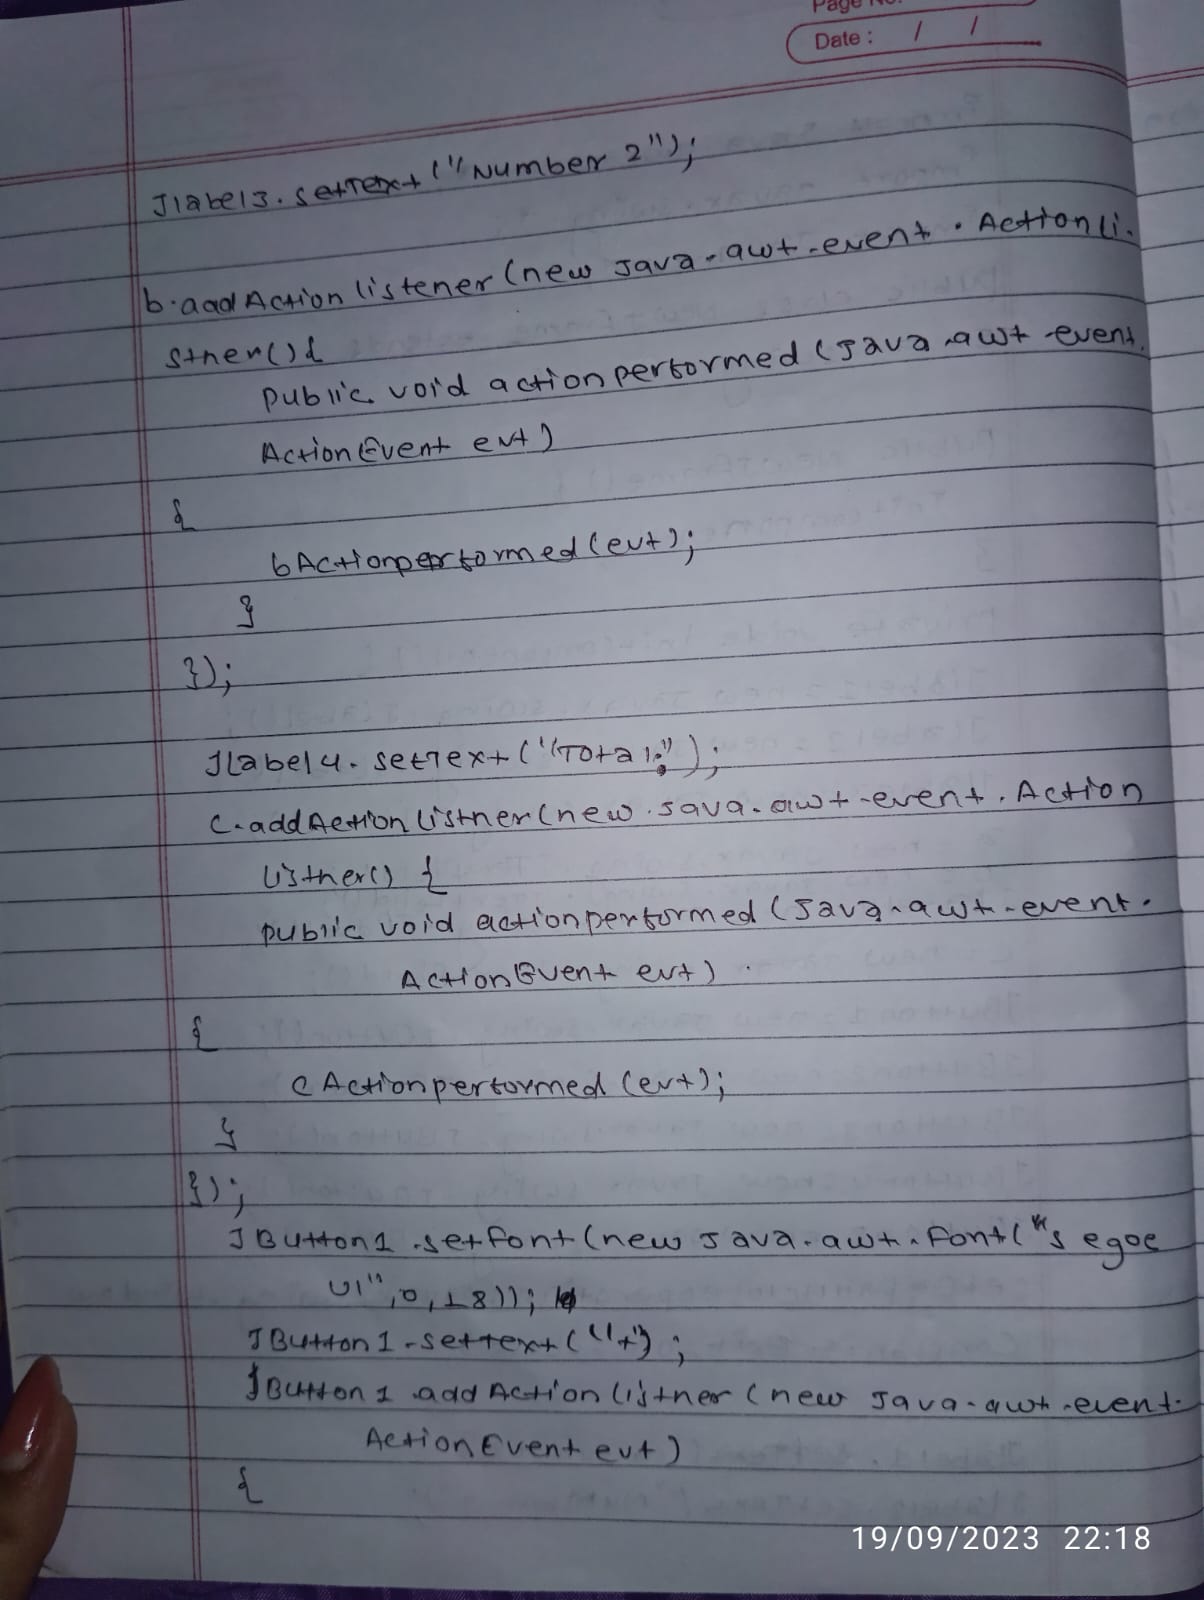 Page No.
Date : / /
Jlabel3.setText("Number 2");
b.addActionlistener(new Java.awt.event.Actionli.
stner(){
public void actionperformed(Java.awt.event.
ActionEvent evt)
{
bActionperformed(evt);
}
});
JLabel4.setText("Total:");
c.addActionlistner(new.Java.awt.event.Action
listner() {
public void actionperformed(Java.awt.event.
ActionEvent evt)
{
cActionperformed(evt);
}
});
JButton1.setfont(new Java.awt.font("segoe
UI",0,18));
JButton1.settext("+");
JButton1 addActionlistner(new Java.awt.event.
ActionEvent evt)
{
19/09/2023 22:18